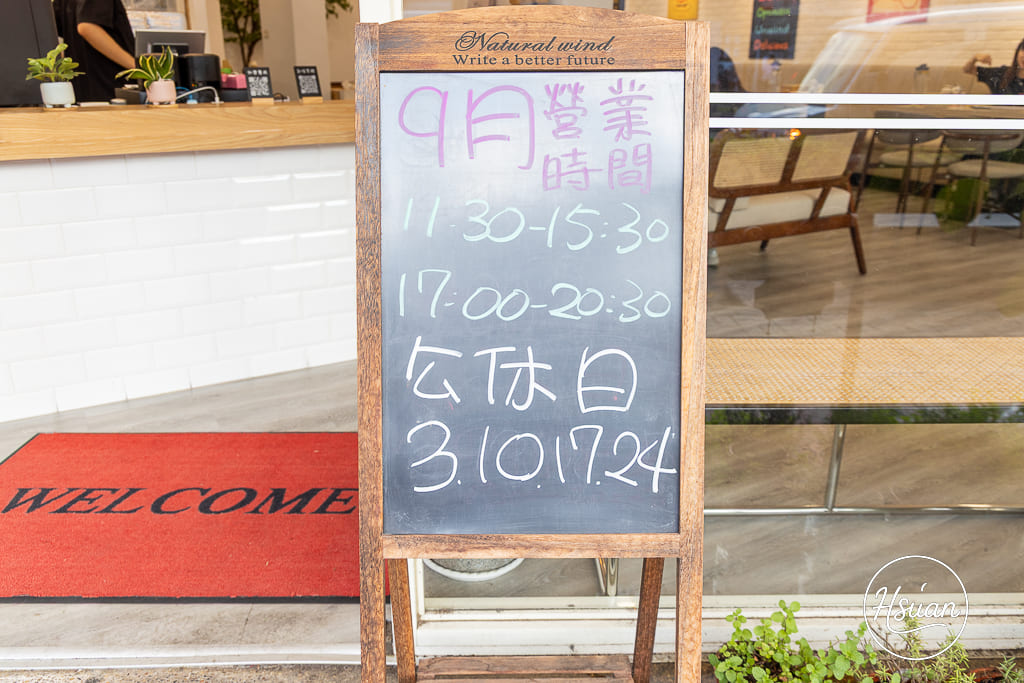 Natural wind
Write a better future
9月營業時間
11:30-15:30
17:00-20:30
公休日
3.10.17.24
WELCOME
Hsuan